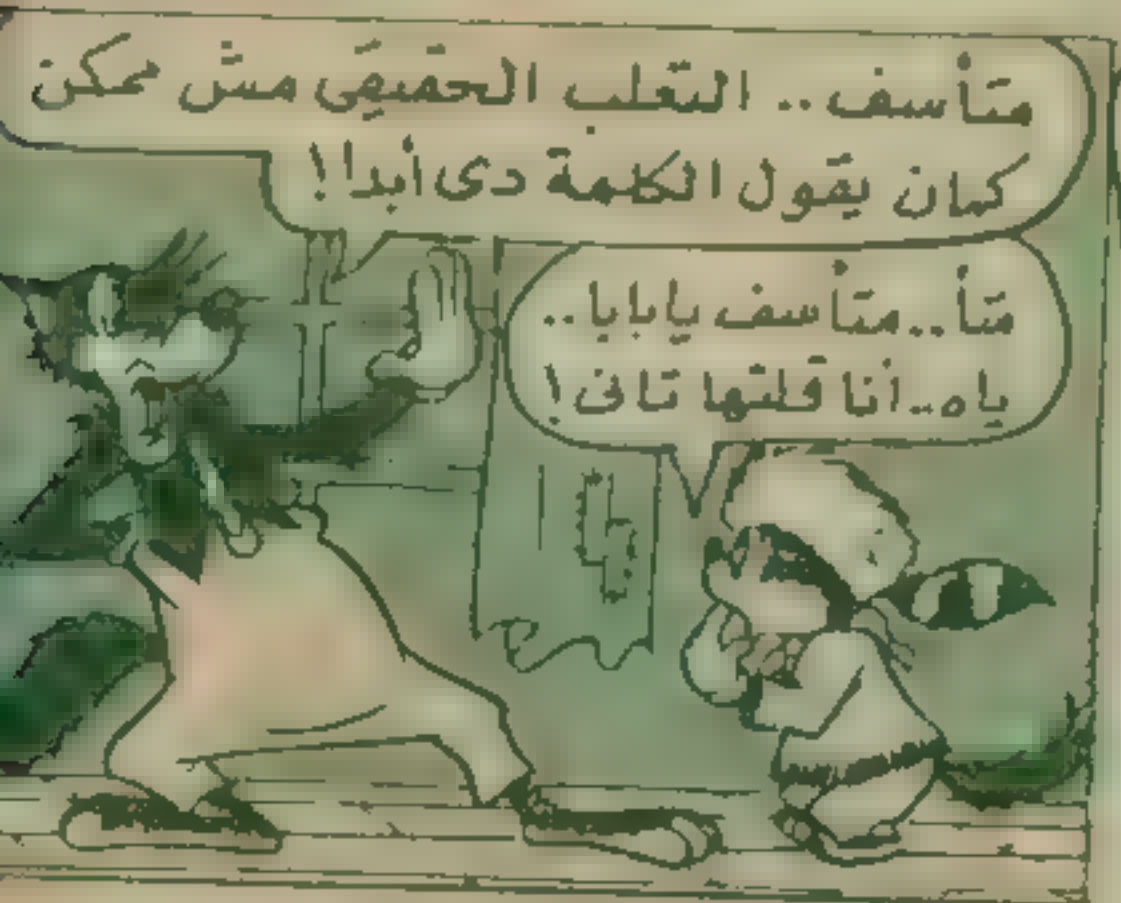 متأسف .. الثعلب الحقيقى مش ممكن
كمان يقول الكلمة دى أبدا !
متأ .. متأسف يابابا ..
ياه .. أنا قلتها تانى !